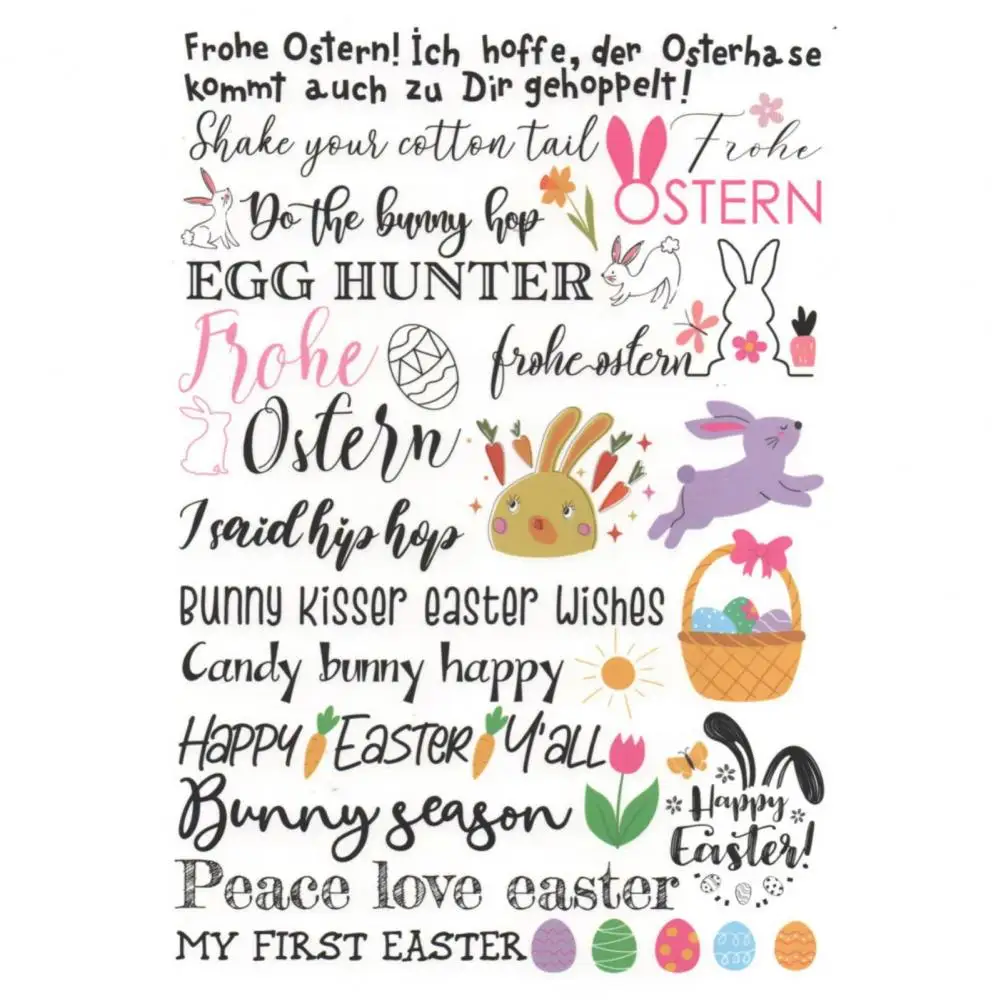 Frohe Ostern! Ich hoffe, der Osterhase
kommt auch zu Dir gehoppelt!
Shake your cotton tail
Frohe
OSTERN
Do the bunny hop
EGG HUNTER
Frohe
Ostern
frohe ostern
I said hip hop
Bunny Kisser easter wishes
Candy bunny happy
HAPPY EASTER Y'all
Bunny season
Happy
Easter!
Peace love easter
MY FIRST EASTER